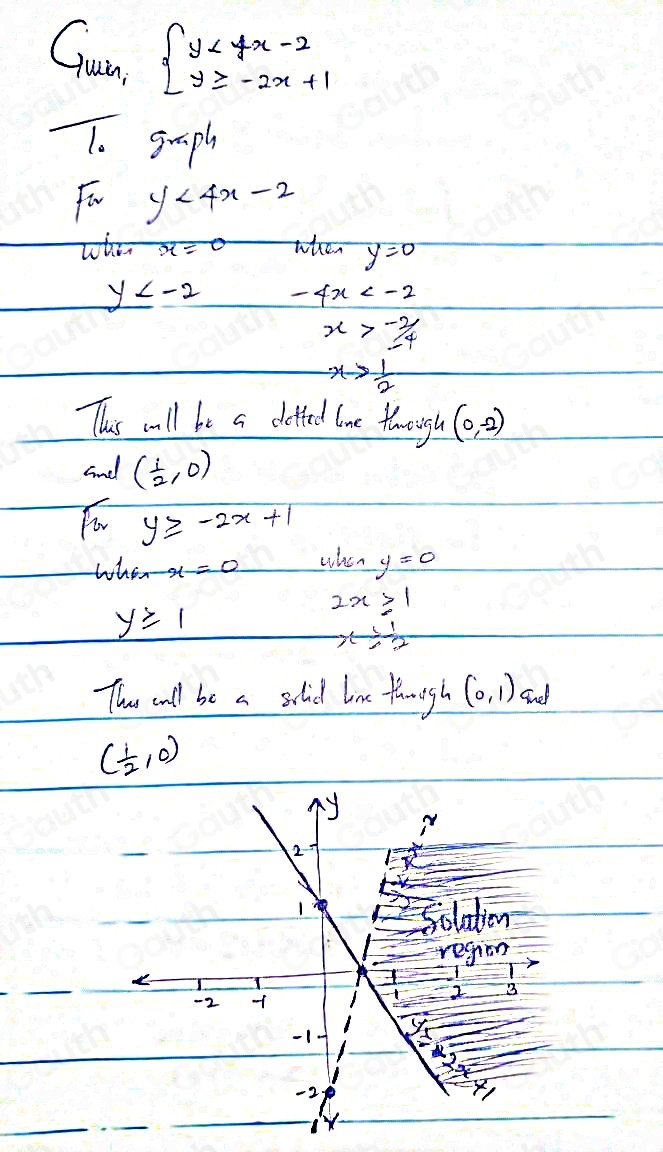 Given, { y < 4x - 2
y ≥ -2x + 1
To graph
For y < 4x - 2
when x = 0 when y = 0
y < -2 -4x < -2
x > -2/-4
x > 1/2
This will be a dotted line through (0,-2)
and (1/2, 0)
For y ≥ -2x + 1
when x = 0 when y = 0
y ≥ 1 2x ≥ 1
x ≥ 1/2
This will be a solid line through (0,1) and
(1/2, 0)
y
2
1
Solution
region
-2 -1 1 2 3
-1
-2
y ≥ -2x + 1